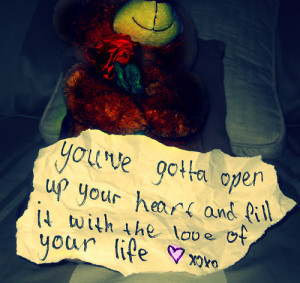 you've gotta open
up your heart and fill
it with the love of
your life ♡ xoxo